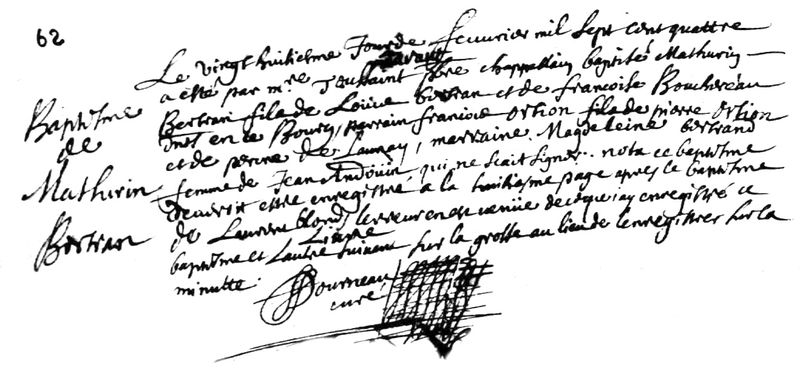 62
Baptesme
de
Mathurin
Bertran
Le vingt huitiesme Jour de feuvrier mil sept cent quattre
a esté par mre Toussaint pbre chappellain baptisé Mathurin
Bertran fils de Louise bertran et de francoise Bouchereau
en ce Bourg, parrain francois ortion fils de pierre ortion
et de perrine de Launay, marraine Magdeleine bertrand
femme de Jean Andouin, qui ne scait signer. nota ce baptesme
deuvroit estre enregistré a la huitiesme page apres le baptesme
de Laurent blond, lerreur en est venüe de ce que iay enregistré ce
baptesme et Lautre suivant sur la grosse au lieu de lenregistrer sur la
minutte.
curé